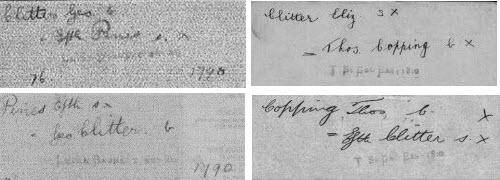 Clitter Geo. b
- Elizth Pines s. x
76 1790
Clitter Eliz s x
- Thos Copping b x
Pines Elizth s x
- Geo Clitter. b
1790
Copping Thos. b. x
- Elizth Clitter s. x